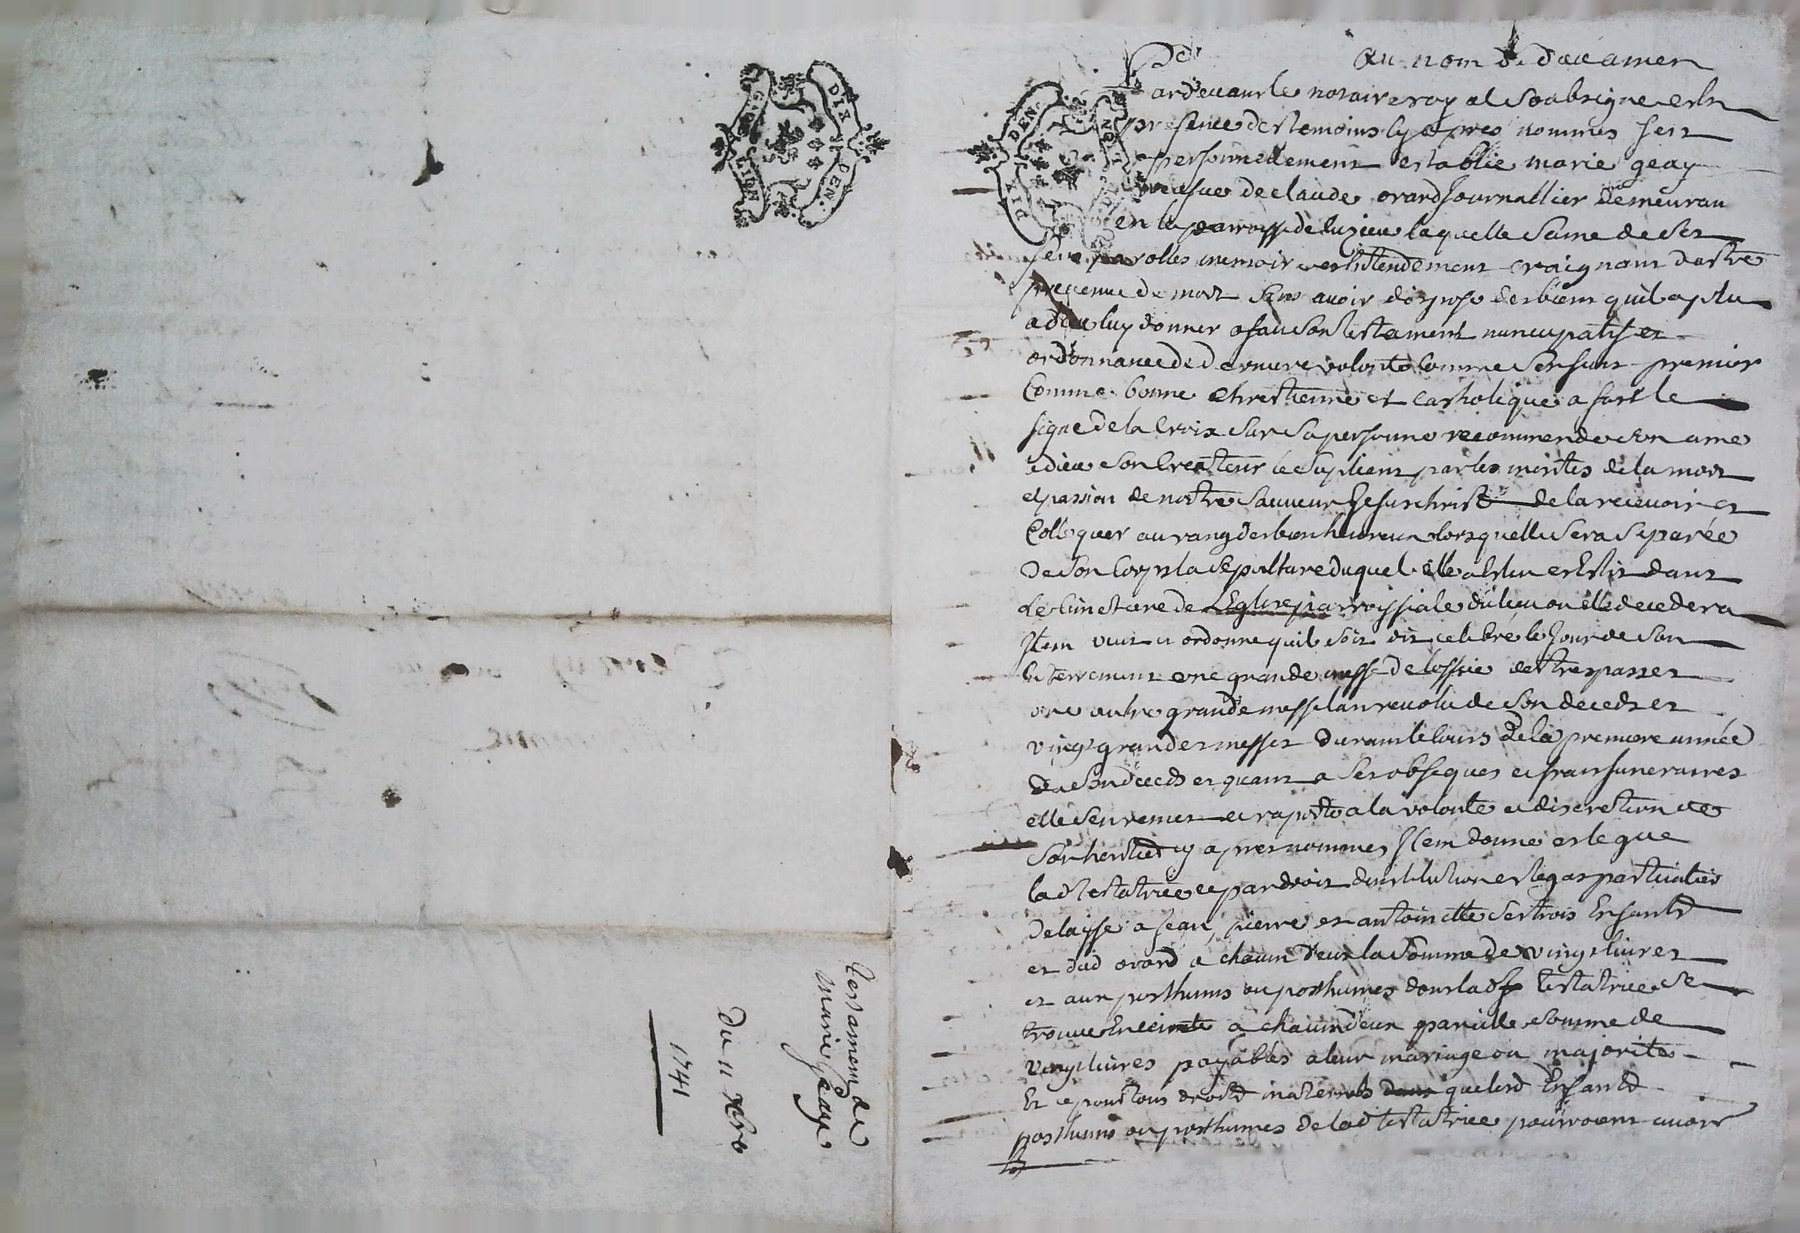 DIX DEN.
DIX DEN.
Testament de
Marie Geay
Du 11 Xbre
1741
Au nom de dieu amen
Pardevant le notaire royal Soubsigne et En
presence des temoins cy apres nommes feut
personnellement establie marie geay
veufue de claude orard Journallier demeurant
en la parroisse de luzieu laquelle Saine de Ses
sens parolles memoir et Entendement craignant destre
prevenue de mort Sans avoir dispose des biens quil a plu
a dieu luy donner a fait Son testament nuncupatif et
ordonnance de derniere volonte Comme Sensuit premier
Comme bonne Chrestienne et catholique a fait le
signe de la Croix Sur Sa personne recommende Son ame
a dieu Son Createur le Supliant par les merites de la mort
et passion de nostre Sauveur Jesus christ de la recevoir et
Colloquer au rang des bien heureux lorsquelle Sera Separée
de Son Corps la Sepulture duquel elle a Eslu et Eslit dans
Le Cimetiere de LEglise parroissiale du lieu ou elle decedera
Item veut et ordonne quil Soit dit celebré le Jour de Son
Enterrement une grande messe de loffice des trespasses
une autre grande messe lan revolu de Son deceds et
vingt grandes messes durant le Cours de la premiere année
de Son deceds et quant a Ses obseques et frais funeraires
elle Sen remet et raporte a la volonte et discretion de
Son heritier cy apres nommes Item donne et legue
lad testatrice et par droit dinstitution et legat particulier
delaisse a Jean, pierre et antoinette Ses trois Enfants
et dud orard a chacun deux la Somme de vingt livres
et aux posthume ou posthumes dont lad testatrice Se
trouve Enceinte a chacun deux pareille Somme de
vingt livres payables a leur mariage ou majorite
Et ce pour tous droits maternels que lesd Enfants
posthume ou posthumes de lad testatrice pourroient avoir